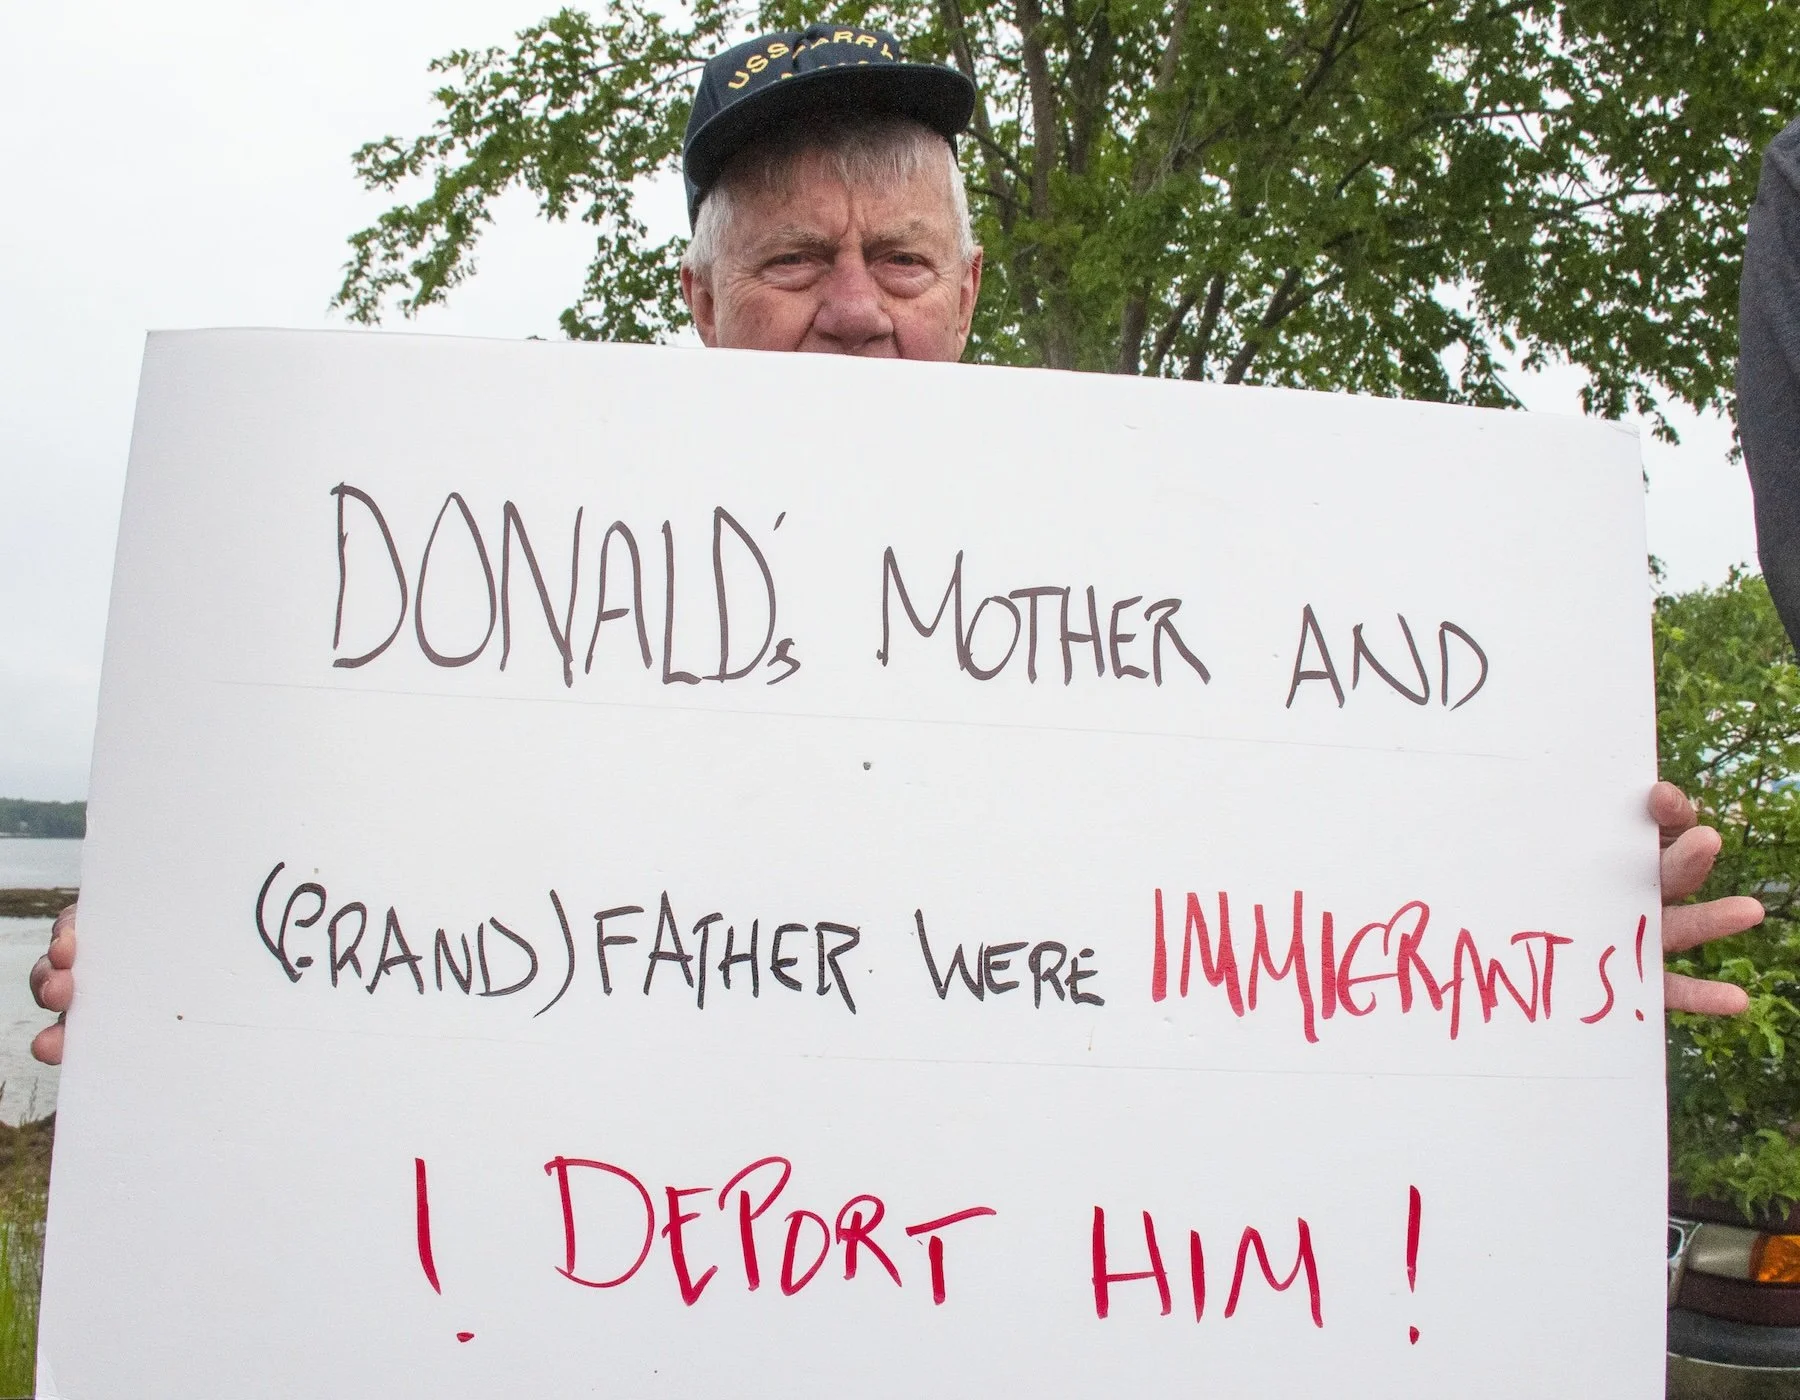 USS
DONALD's MOTHER AND
(GRAND)FATHER WERE IMMIGRANTS!
! DEPORT HIM !